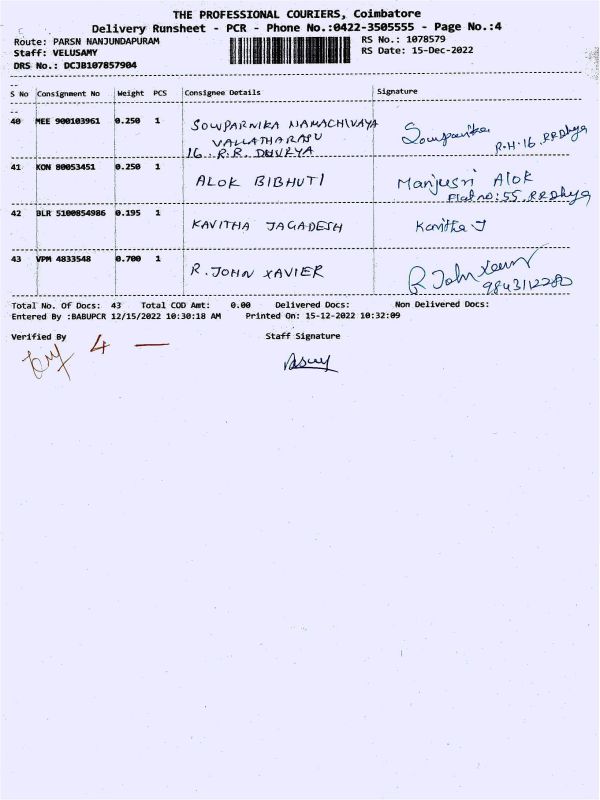 THE PROFESSIONAL COURIERS, Coimbatore
Delivery Runsheet - PCR - Phone No.:0422-3505555 - Page No.:4
Route: PARSN NANJUNDAPURAM RS No.: 1078579
Staff: VELUSAMY RS Date: 15-Dec-2022
DRS No.: DCJB107857904
S No Consignment No Weight PCS Consignee Details Signature
40 MEE 900103961 0.250 1 SOWPARNIKA NAMACHIVAYA Sowparnika
VALLATHARASU R.H.16.RRDhya
16. R.R. DHURYA
41 KON 80053451 0.250 1 ALOK BIBHUTI Manjusri Alok
Flat no: 55, RRDhya
42 BLR 5100854986 0.195 1 KAVITHA JAGADESH Kavitha J
43 VPM 4833548 0.700 1 R. JOHN XAVIER R John Xavier
9843112280
Total No. Of Docs: 43 Total COD Amt: 0.00 Delivered Docs: Non Delivered Docs:
Entered By :BABUPCR 12/15/2022 10:30:18 AM Printed On: 15-12-2022 10:32:09
Verified By Staff Signature
4 —